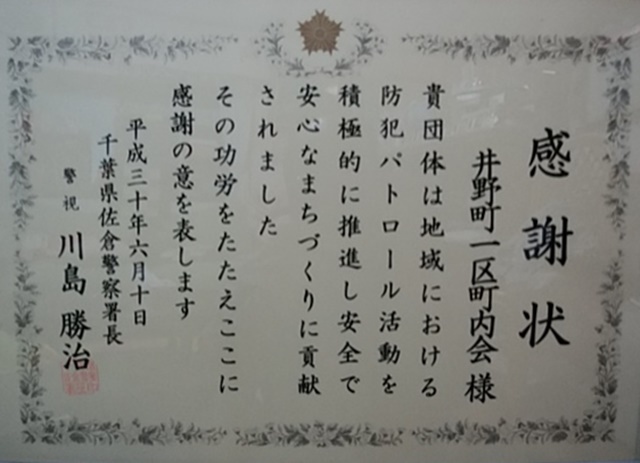 感謝状
井野町一区町内会 様
貴団体は地域における
防犯パトロール活動を
積極的に推進し安全で
安心なまちづくりに貢献
されました
その功労をたたえここに
感謝の意を表します
平成三十年六月十日
千葉県佐倉警察署長
警視 川島勝治